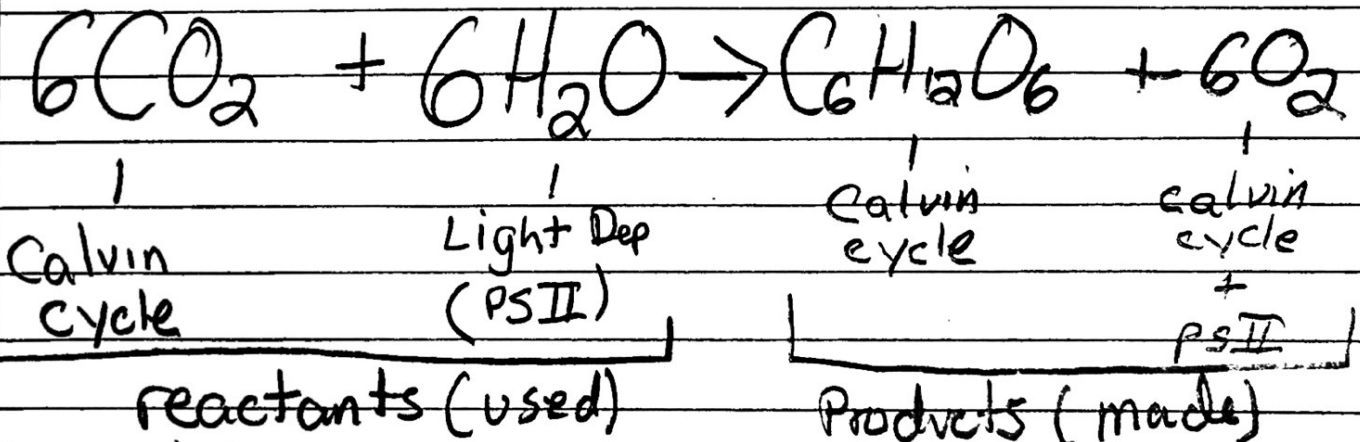 6CO₂ + 6H₂O → C₆H₁₂O₆ + 6O₂
Calvin cycle
Light Dep
(PSII)
Calvin
cycle
calvin
cycle
+
psII
reactants (used)
Products (made)